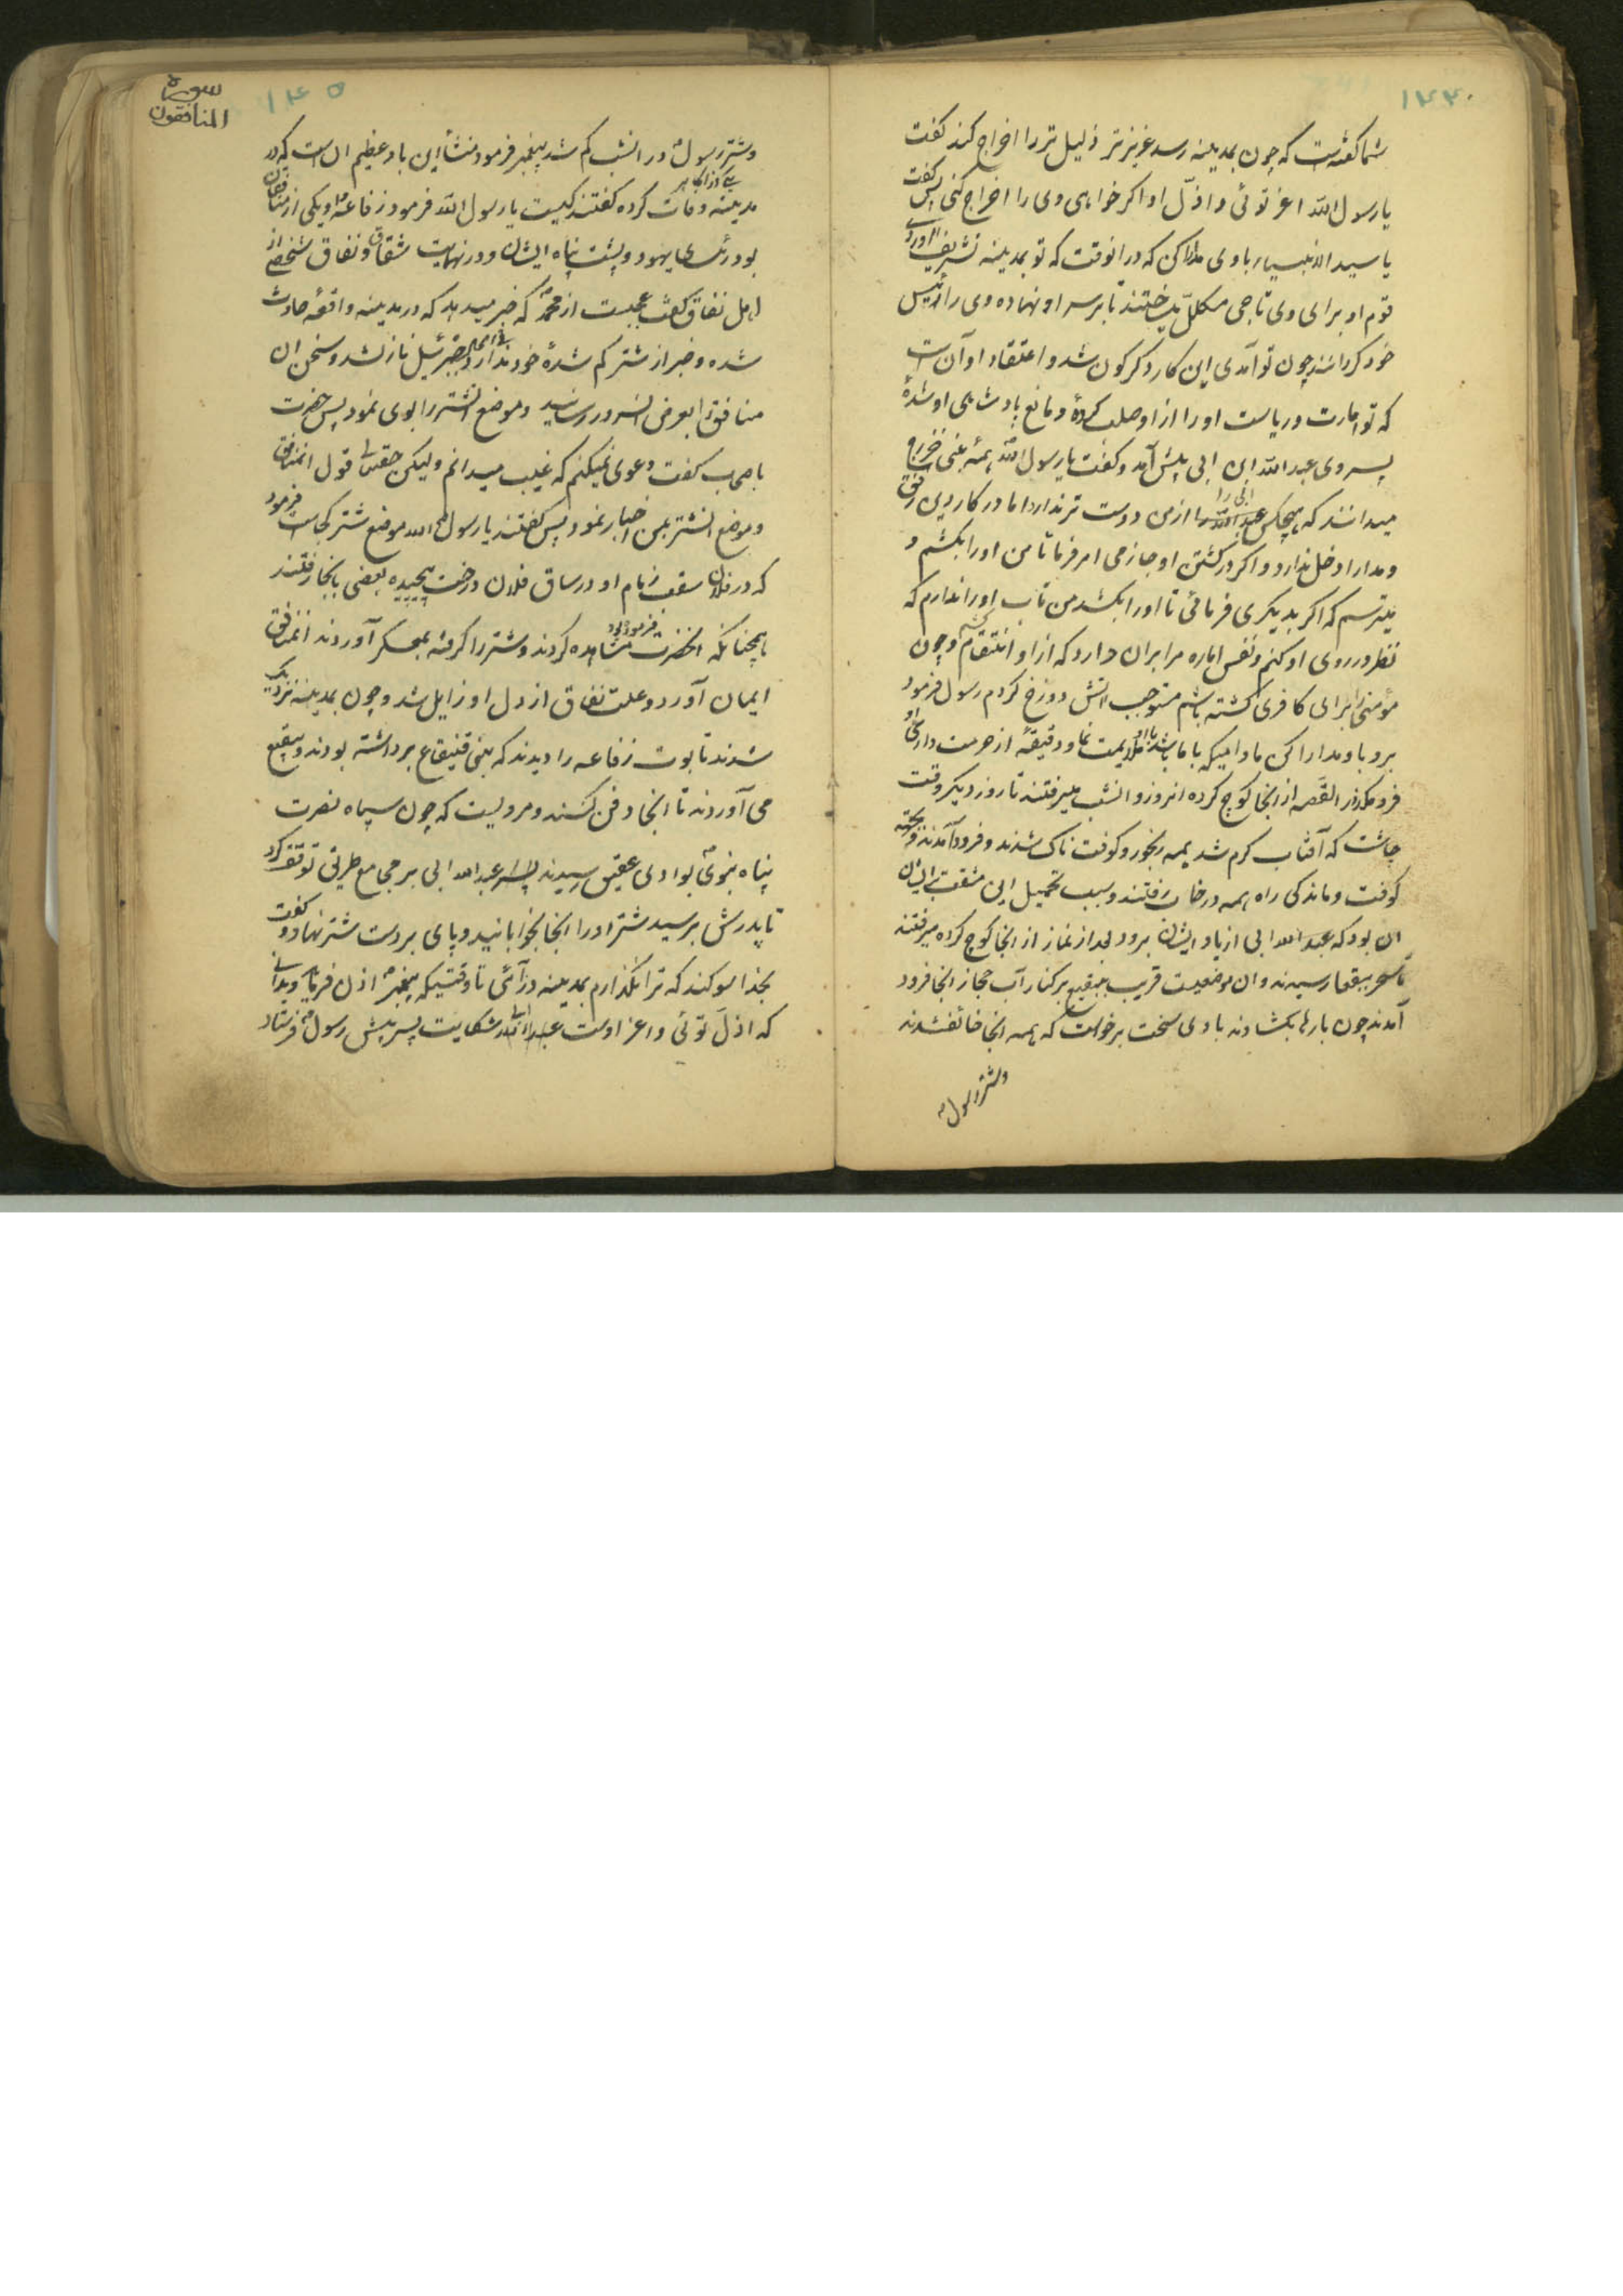 ۱۴۴
شما گفته است که چون بمدینه رسد عزیزتر ذلیل تر را اخراج کند گفت
یا رسول الله اعز توئی و اذلّ او اگر خواهی وی را اخراج کنی پس گفت
یا سید الانبیاء با وی مدارا کن که در انوقت که تو بمدینه تشریف آوردی
قوم او برای وی تاجی مکلل میساختند تا بر سر او نهاده وی را رئیس
خود گردانند چون تو آمدی این کار دگرگون شد و اعتقاد او آن است
که تو امارت و ریاست او را از او سلب کردۀ و مانع پادشاهی او شدۀ
پسر وی عبد الله ابن ابی پیش آمد و گفت یا رسول الله همه بنی خزرج
میدانند که هیچکس عبد الله ابی را از من دوست تر ندارد اما در کار دین رفق
و مدارا دخل ندارد و اگر در کشتن او جازمی امر فرما تا من او را بکشم و
میترسم که اگر بدیگری فرمائی تا او را بکشد من تاب اورا ندارم که
نظر در روی او کنم و نفس اماره مرا بران دارد که از او انتقام کشم و چون
مؤمنی را برای کافری کشته باشم مستوجب اتش دوزخ گردم رسول فرمود
برو با او مدارا کن مادامیکه با ما باشد با او ملایمت نما و دقیقۀ از حرمت داری او
فرو مگذار القصه از انجا کوچ کرده انروز و انشب میرفتند تا روز دیگر وقت
چاشت که آفتاب گرم شد همه رنجور و کوفت ناک شدند و فرود آمدند و بجهة
کوفت و ماندگی راه همه در خواب رفتند و سبب تحمیل این مشقت بر ایشان
ان بود که عبد الله ابی از یاد ایشان برود بعد از نماز از انجا کوچ کرده میرفتند
تا سحر ببقعا رسیدند و ان موضعیست قریب ببقیع بر کنار آب حجاز انجا فرود
آمدند چون بارها بگشادند بادی سخت برخواست که همه انجا خائف شدند
و شتر رسول
سورة
المنافقون
۱۴۵
و شتر رسول در انشب گم شد پیغمبر فرمود منشأ این باد عظیم ان است که در
مدینه یکی از اکابر وفات کرده گفتند کیست یا رسول الله فرمود زفاعه و او یکی از منافقان
بود و رئیس یهود و پشت پناه ایشان و در نهایت شقاق و نفاق شخصی از
اهل نفاق گفت عجبست از محمد که خبر میدهد که در مدینه واقعه حادث
شده و خبر از شتر گم شدۀ خود ندارد فی الحال جبرئیل نازل شد و سخن ان
منافق را بعرض انسرور رسانید و موضع انشتر را بوی نمود پس حضرت
باصحاب گفت دعوی نمیکنم که غیب میدانم ولیکن حقتعالی قول انمنافق
و موضع انشتر بمن اخبار نمود پس گفتند یا رسول الله موضع شتر کجاست فرمود
که در فلان سقف زمام او در ساق فلان درخت پیچیده بعضی بانجا رفتند
همچنانکه انحضرت فرموده بود مشاهده کردند و شتر را گرفته بمعسکر آوردند انمنافق
ایمان آورد و علت نفاق از دل او زایل شد و چون بمدینه نزدیک
شدند تابوت زفاعه را دیدند که بنی قینقاع برداشته بودند و ببقیع
می آوردند تا انجا دفن کنند و مرویست که چون سپاه نصرت
پناه نبوی بوادی عقیق رسیدند پسر عبد الله ابی بر مجامع طریق توقف کرد
تا پدرش برسید شتر او را انجا بخوابانید و پای بر دست شتر نهاد و گفت
بخدا سوگند که ترا نگذارم بمدینه درآئی تا وقتیکه پیغمبر اذن فرماید و بدانی
که اذل توئی و اعز اوست عبد الله ابی شکایت پسر پیش رسول فرستاد